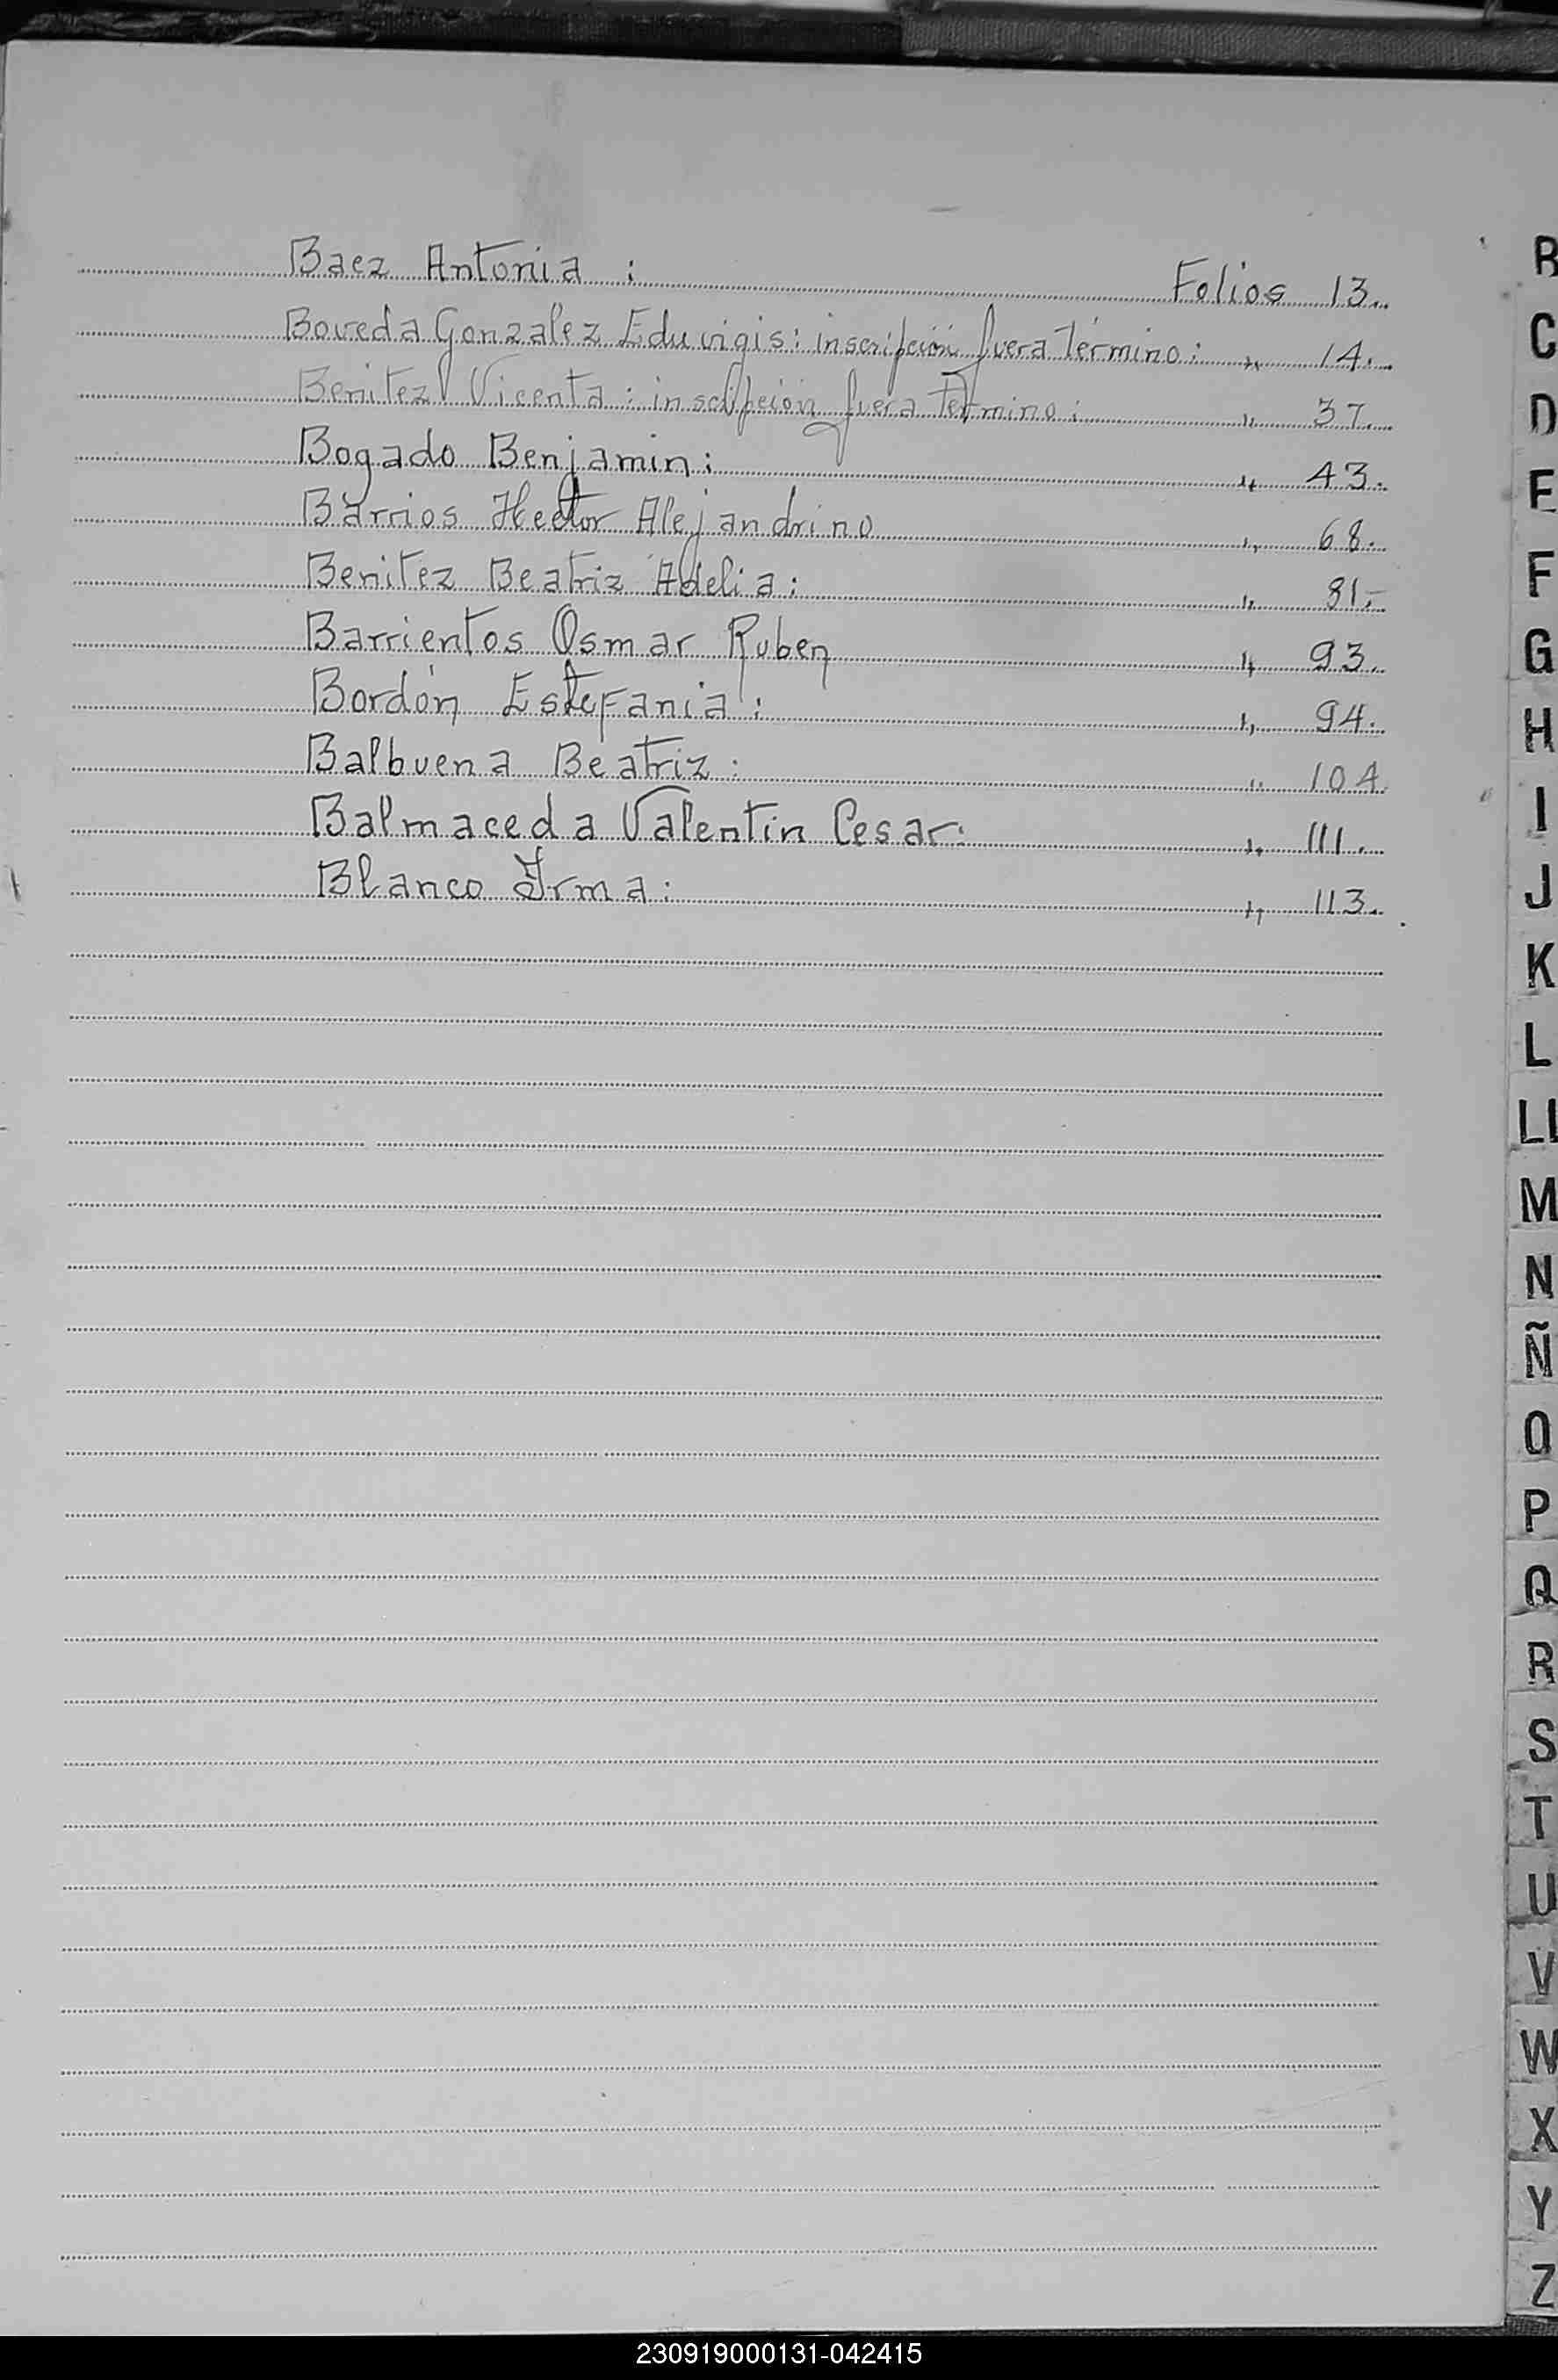 Baez Antonia : Folios 13.
Boveda Gonzalez Eduvigis: inscripción fuera término: " 14.
Benitez Vicenta: inscripción fuera término: " 37.
Bogado Benjamin: " 43.
Barrios Hector Alejandrino " 68.
Benitez Beatriz Adelia: " 81.-
Barrientos Osmar Ruben " 93.
Bordón Estefania: " 94.
Balbuena Beatriz: " 104
Balmaceda Valentin Cesar: " 111.
Blanco Irma: " 113.
B
C
D
E
F
G
H
I
J
K
L
LL
M
N
Ñ
O
P
Q
R
S
T
U
V
W
X
Y
Z
230919000131-042415